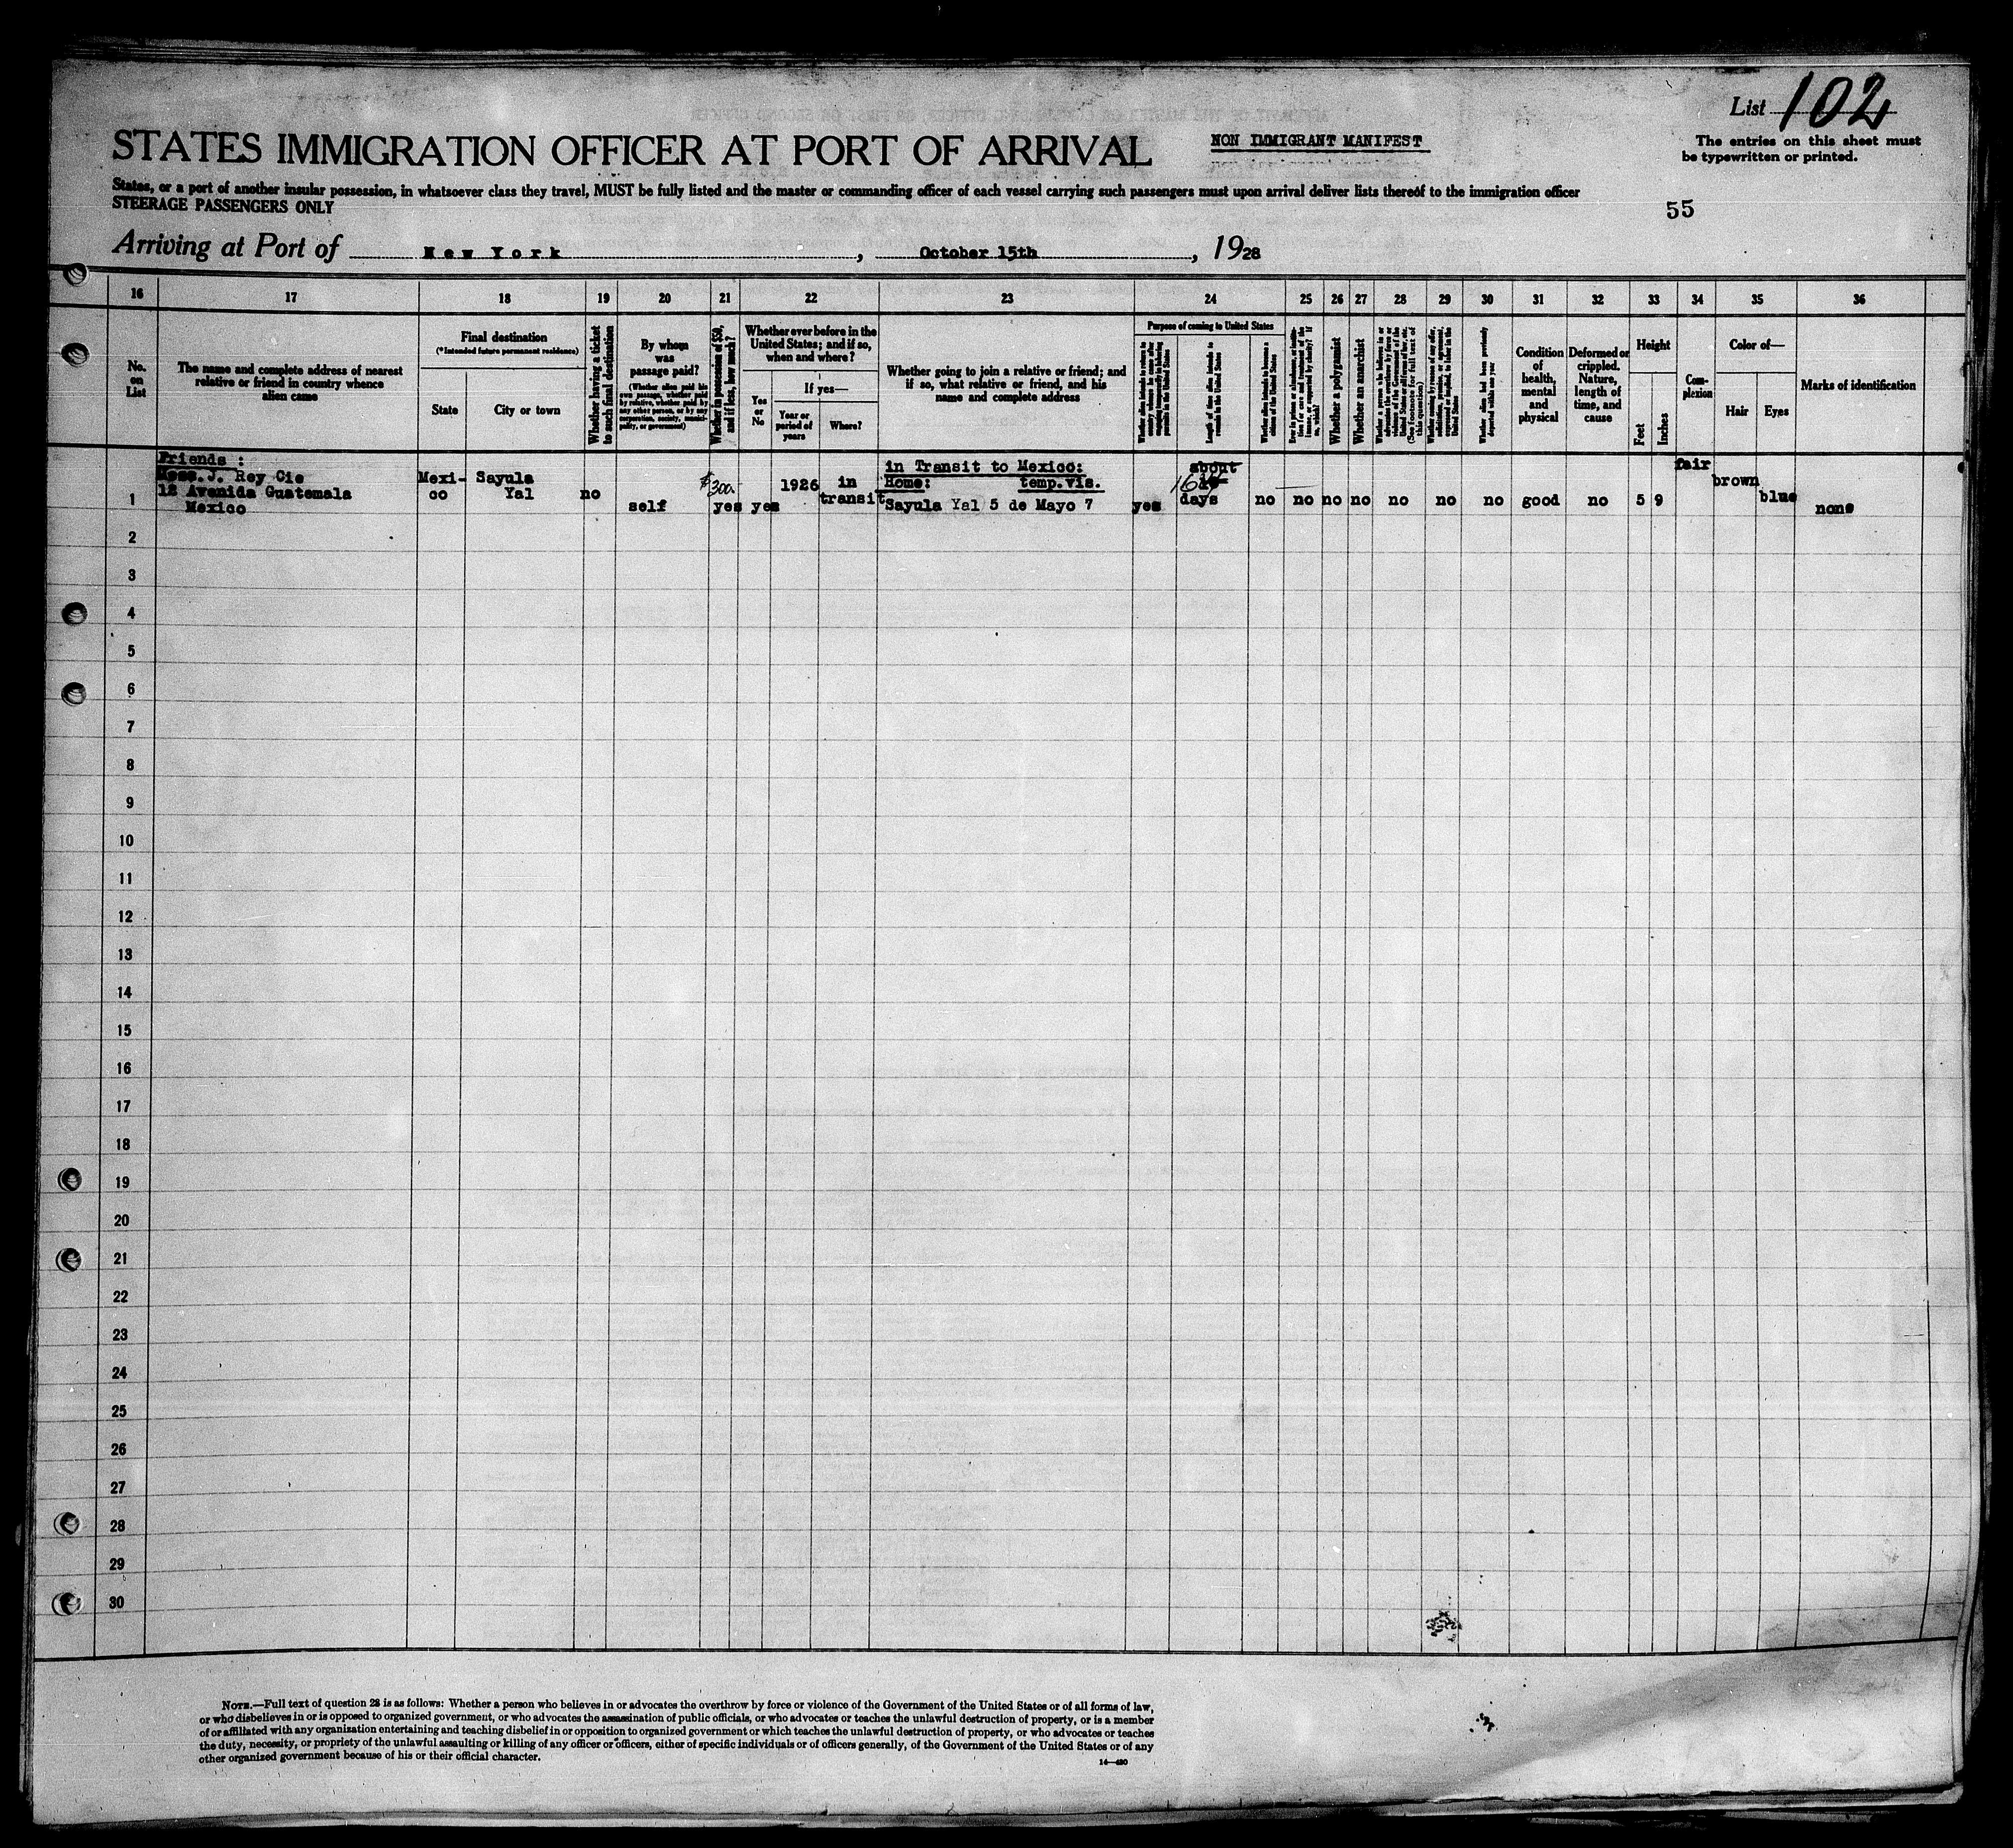 List 102
STATES IMMIGRATION OFFICER AT PORT OF ARRIVAL
NON IMMIGRANT MANIFEST
The entries on this sheet must
be typewritten or printed.
States, or a port of another insular possession, in whatsoever class they travel, MUST be fully listed and the master or commanding officer of each vessel carrying such passengers must upon arrival deliver lists thereof to the immigration officer
STEERAGE PASSENGERS ONLY
55
Arriving at Port of New York, October 15th, 1928
16 17 18 19 20 21 22 23 24 25 26 27 28 29 30 31 32 33 34 35 36
No.
on
List
The name and complete address of nearest
relative or friend in country whence
alien came
Final destination
(*Intended future permanent residence)
State
City or town
Whether having a ticket
to such final destination
By whom
was
passage paid?
(Whether alien paid his
own passage, whether paid
by relative, whether paid by
any other person, or by any
corporation, society, munici-
pality, or government)
Whether in possession of $50,
and if less, how much?
Whether ever before in the
United States; and if so,
when and where?
Yes
or
No
If yes—
Year or
period of
years
Where?
Whether going to join a relative or friend; and
if so, what relative or friend, and his
name and complete address
Purpose of coming to United States
Whether alien intends to return to
country whence he came after
engaging temporarily in laboring
pursuits in the United States
Length of time alien intends to
remain in the United States
Whether alien intends to become a
citizen of the United States
Whether a polygamist
Whether an anarchist
Whether alien had been previously
deported within one year
Condition
of
health,
mental
and
physical
Deformed or
crippled.
Nature,
length of
time, and
cause
Height
Feet
Inches
Com-
plexion
Color of—
Hair
Eyes
Marks of identification
1
Friends :
J. Rey Cie
12 Avenida Guatemala
Mexico
Mexi-
co
Sayula
Yal
no
self
$300.
yes
yes
1926
in
transit
in Transit to Mexico:
Home: temp.vis.
Sayula Yal 5 de Mayo 7
yes
about
16
days
no
no
no
no
no
no
no
good
no
5
9
fair
brown
blue
none
2
3
4
5
6
7
8
9
10
11
12
13
14
15
16
17
18
19
20
21
22
23
24
25
26
27
28
29
30
NOTE.—Full text of question 28 is as follows: Whether a person who believes in or advocates the overthrow by force or violence of the Government of the United States or of all forms of law,
or who disbelieves in or is opposed to organized government, or who advocates the assassination of public officials, or who advocates or teaches the unlawful destruction of property, or is a member
of or affiliated with any organization entertaining and teaching disbelief in or opposition to organized government or which teaches the unlawful destruction of property, or who advocates or teaches
the duty, necessity, or propriety of the unlawful assaulting or killing of any officer or officers, either of specific individuals or of officers generally, of the Government of the United States or of any
other organized government because of his or their official character.
14—430